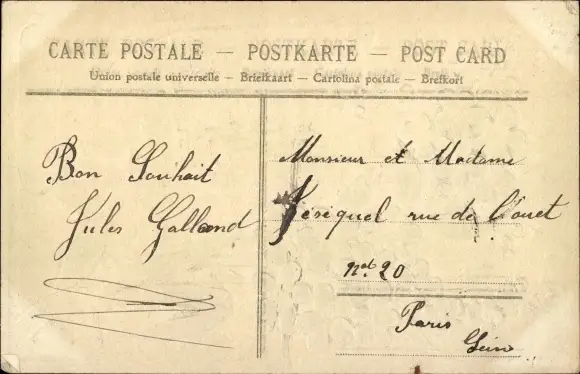 CARTE POSTALE — POSTKARTE — POST CARD
Union postale universelle – Briefkaart – Cartolina postale – Brefkort
Bon Souhait
Jules Galland
Monsieur et Madame
Jéséquel rue de l'ouet
20
Paris